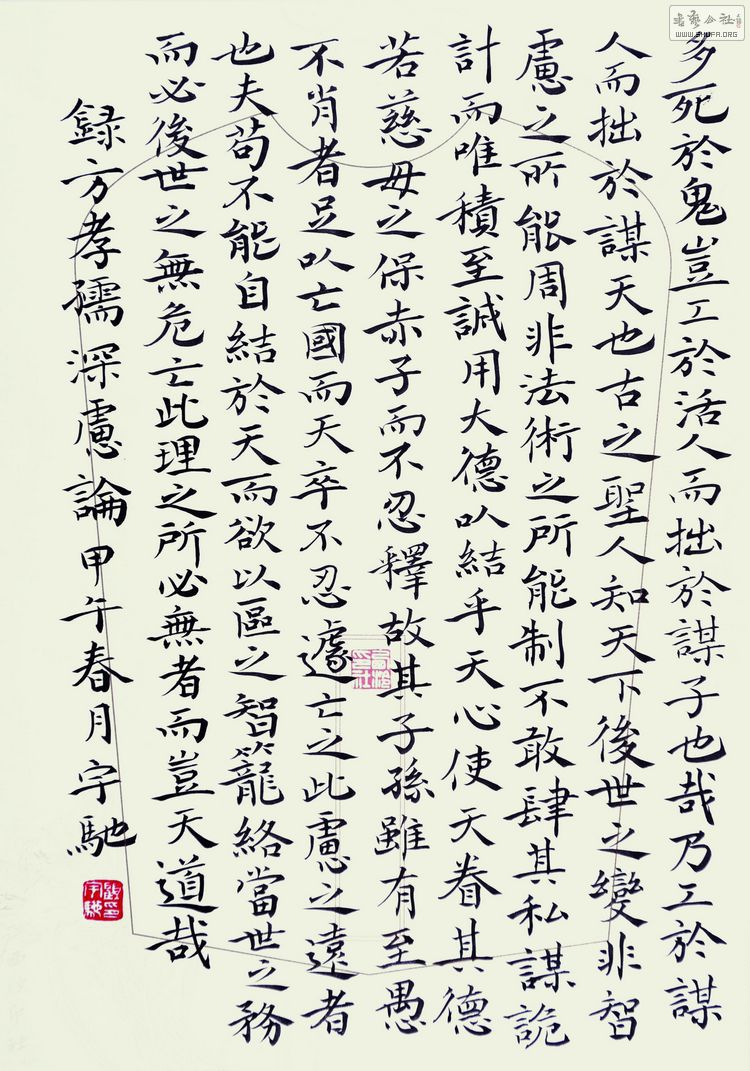 多死於鬼豈工於活人而拙於謀子也哉乃工於謀
人而拙於謀天也古之聖人知天下後世之變非智
慮之所能周非法術之所能制不敢肆其私謀詭
計而唯積至誠用大德以結乎天心使天眷其德
若慈母之保赤子而不忍釋故其子孫雖有至愚
不肖者足以亡國而天卒不忍遽亡之此慮之遠者
也夫苟不能自結於天而欲以區之智籠絡當世之務
而必後世之無危亡此理之所必無者而豈天道哉
録方孝孺深慮論甲午春月宇馳
書法公社
WWW.SHUFA.ORG